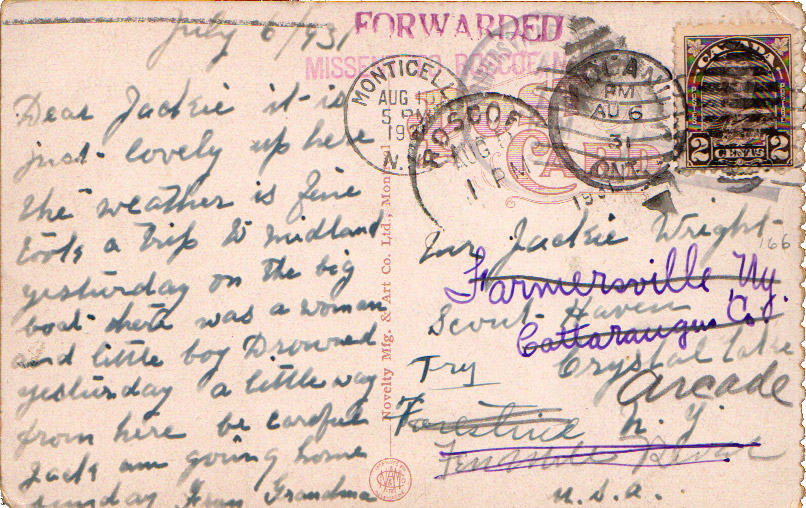 July 6/931
FORWARDED
MISSENT TO ROSCOE N
MONTICELLO
AUG
5 PM
1931
N.Y.
ROSCOE
AUG
1 PM
PM
AU 6
31
ONT
1931
POST
CARD
CANADA
2 CENTS 2
Dear Jackie it is
just lovely up here
the weather is fine
took a trip to midland
yesturday on the big
boat there was a woman
and little boy Drowned
yesturday a little way
from here be careful
Jack am going home
sunday From Grandma
Novelty Mfg. & Art Co. Ltd., Montreal
Jackie Wright
166
Farmersville Ny
Scout Haven
Cattaraugus Co.
Try Crystal Lake
Arcade
Forestine N.Y.
Tenmile River
U.S.A.